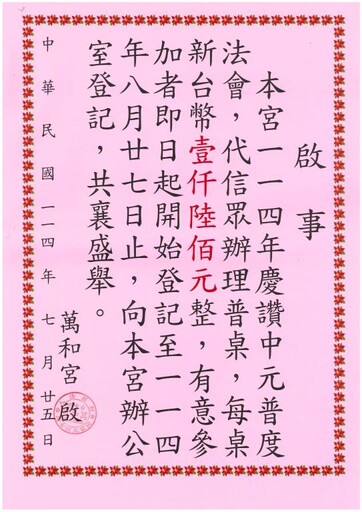 啟事
本宮一一四年慶讚中元普度
法會，代信眾辦理普桌，每桌
新台幣壹仟陸佰元整，有意參
加者即日起開始登記至一一四
年八月廿七日止，向本宮辦公
室登記，共襄盛舉。
萬和宮 啟
中華民國一一四年七月廿五日